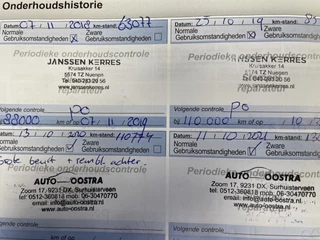 Onderhoudshistorie
Datum 07/11/2018 km-stand: 63077
Normale Zware
Gebruiksomstandigheden Gebruiksomstandigheden
Periodieke onderhoudscontrole
JANSSEN KERRES
Kruisakker 14
5674 TZ Nuenen
Tel: 040-283 20 56
www.janssenkerres.nl
reparatuur
Volgende controle PO
bij 88000 km of op 07/11/2019
Datum 25/10/19 km-stand: 85
Normale Zware
Gebruiksomstandigheden Gebruiksomstandigheden
Periodieke onderhoudscontrole
JANSSEN KERRES
Kruisakker 14
5674 TZ Nuenen
Tel: 040-283 20 56
www.janssenkerres.nl
reparatuur
Volgende controle PO
bij 110000 km of op
Datum 13/10/ km-stand: 110774
Normale Zware
Gebruiksomstandigheden Gebruiksomstandigheden
Grote beurt + remblo achter.
AUTO OOSTRA
Zoom 17, 9231 DX, Surhuisterveen
tel: 0512-360818 mob: 06-30470770
email: info@auto-oostra.nl
www.auto-oostra.nl
Datum 11/10/2021
Normale Zware
Gebruiksomstandigheden Gebruiksomstandigheden
Periodieke onderhoudscontrole
AUTO OOSTRA
Zoom 17, 9231 DX, Surhuisterveen
tel: 0512-360818 mob: 06-30470770
email: info@auto-oostra.nl
www.auto-oostra.nl